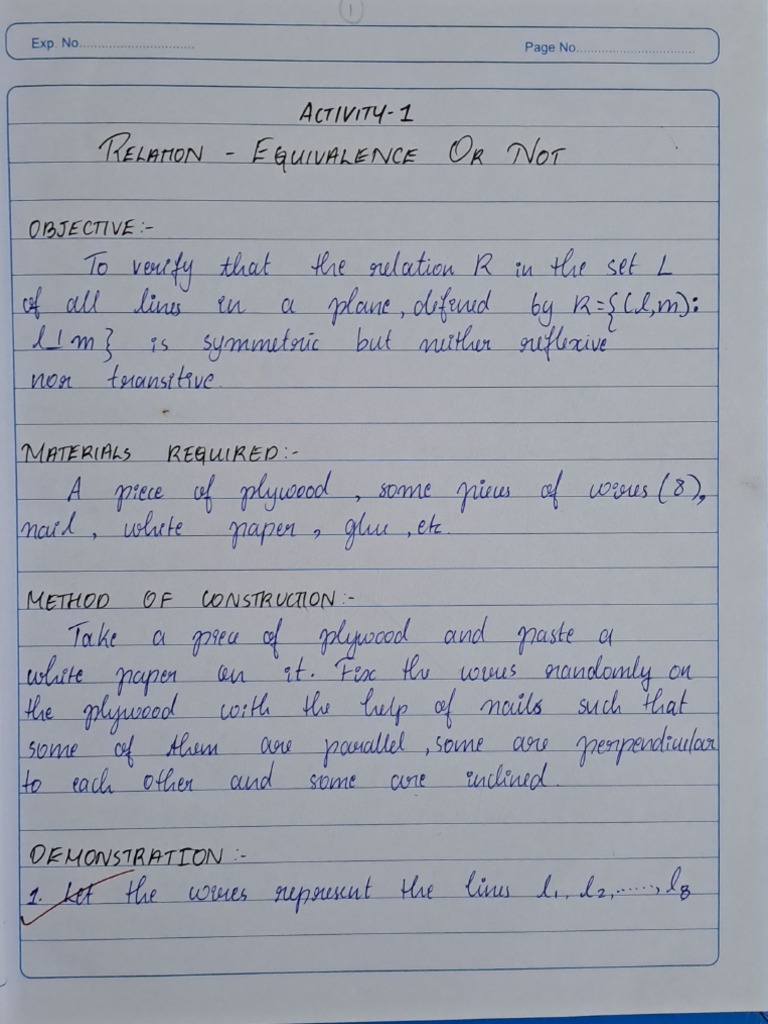 1
Exp. No..................................
Page No...................................
ACTIVITY-1
RELATION - EQUIVALENCE OR NOT
OBJECTIVE:-
To verify that the relation R in the set L
of all lines in a plane, difened by R={(l,m):
l⊥m} is symmetric but neither reflexive
nor transitive.
MATERIALS REQUIRED:-
A piece of plywood, some pieces of wires (8),
nail, white paper, glue, etc.
METHOD OF CONSTRUCTION:-
Take a piece of plywood and paste a
white paper on it. Fix the wires randomly on
the plywood with the help of nails such that
some of them are parallel, some are perpendicular
to each other and some are inclined.
DEMONSTRATION:-
1. Let the wires represent the lines l₁, l₂,......, l₈